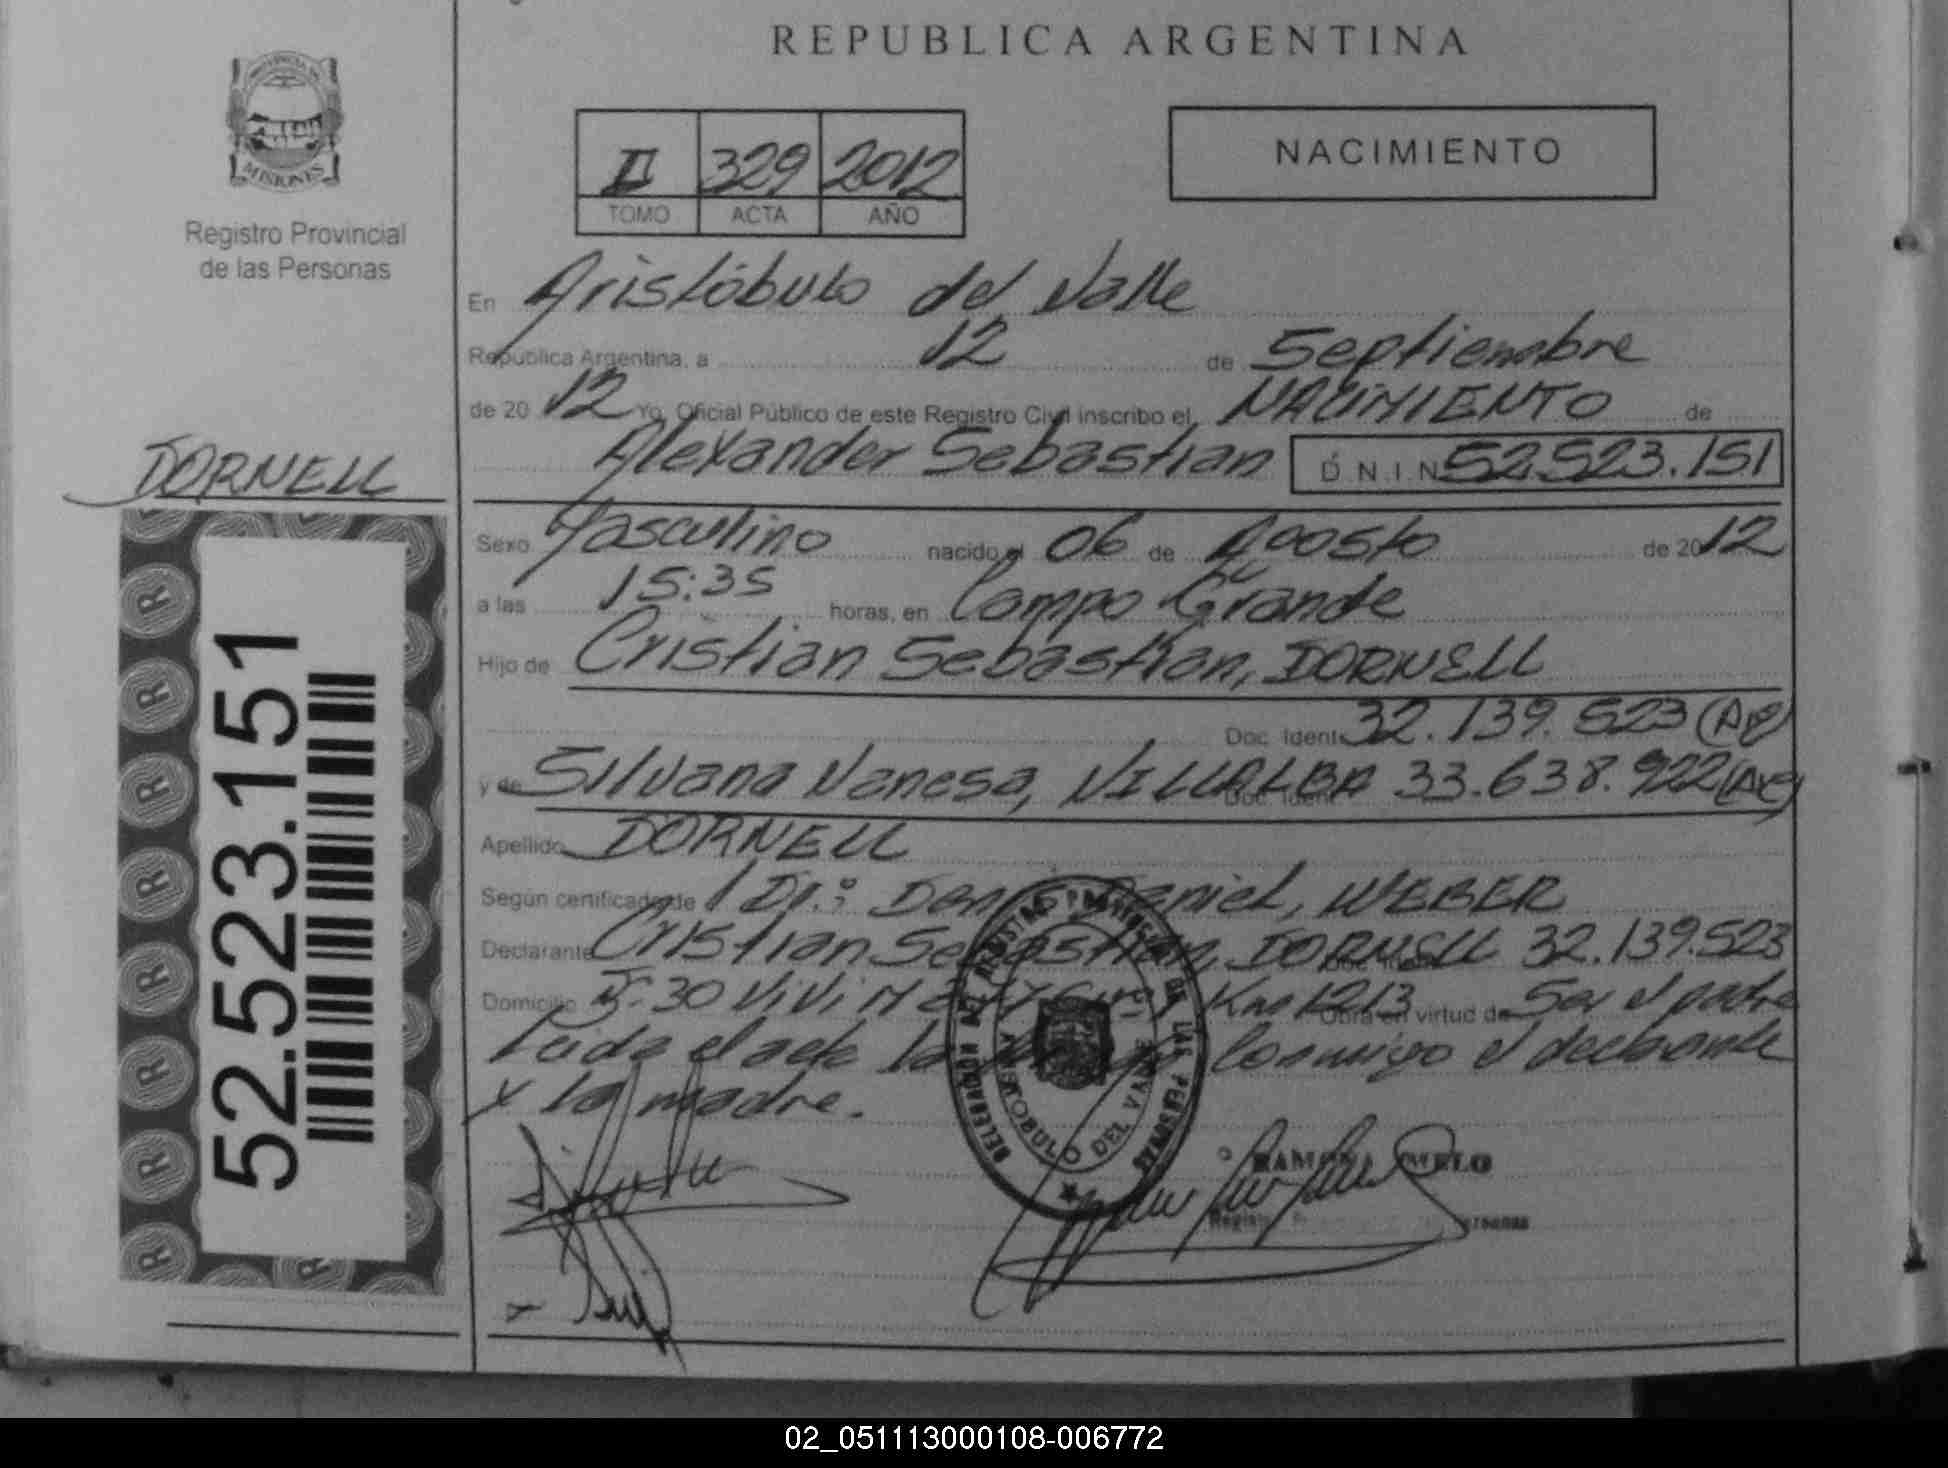 REPUBLICA ARGENTINA
PROVINCIA DE
MISIONES
Registro Provincial
de las Personas
II 329 2012
TOMO ACTA AÑO
NACIMIENTO
En Aristóbulo del Valle
República Argentina, a 12 de Septiembre
de 20 12 Yo, Oficial Público de este Registro Civil inscribo el NACIMIENTO de
Alexander Sebastian D.N.I.N 52.523.151
DORNELL
Sexo Masculino nacido el 06 de Agosto de 2012
a las 15:35 horas, en Campo Grande
Hijo de Cristian Sebastian, DORNELL
Doc. Ident. 32.139.523 (Arg)
y de Silvana Vanesa, VILLALBA Doc. Ident. 33.638.922 (Arg)
Apellido DORNELL
Según certificado de Dr.: Daniel, WEBER
Declarante Cristian Sebastian, DORNELL 32.139.523
Domicilio 30 Vivi Km 1213 Obra en virtud de Ser el padre
Leida el acta conmigo el declarante
y la madre.
52.523.151
DELEGACIÓN DEL REGISTRO PROVINCIAL DE LAS PERSONAS
ARISTOBULO DEL VALLE
RAMONA MELO
Personas
02_051113000108-006772